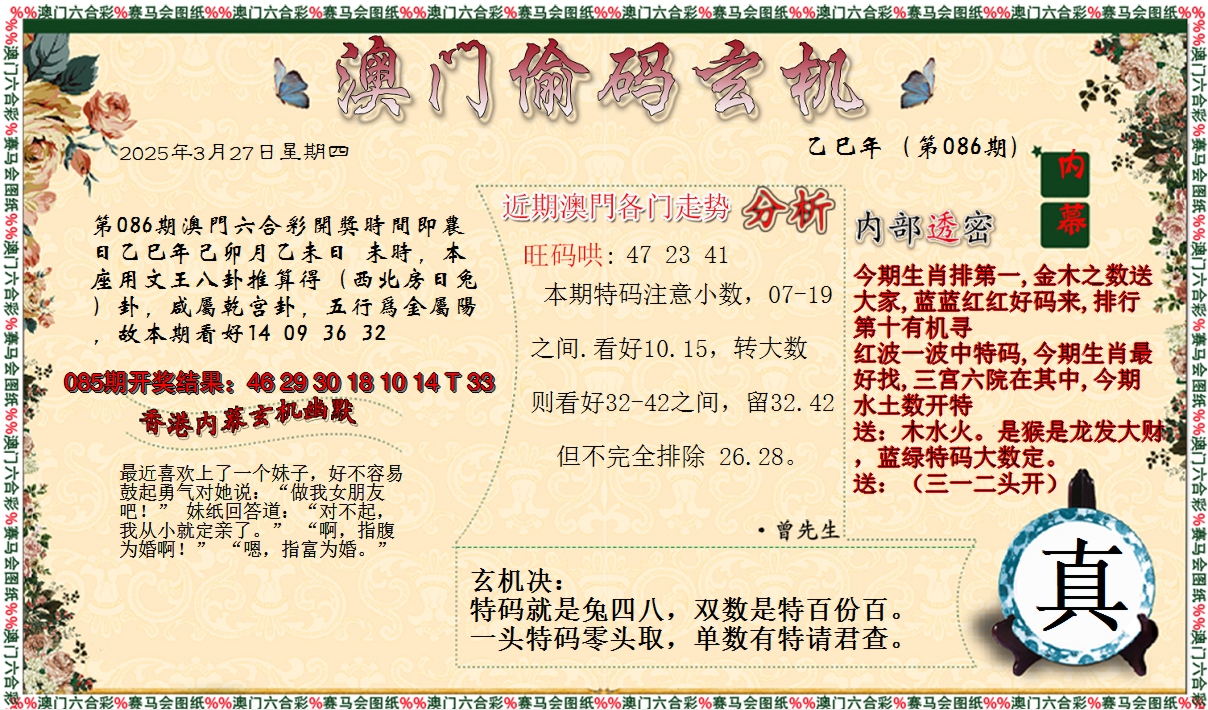 %%澳门六合彩%赛马会图纸%%澳门六合彩%赛马会图纸%%澳门六合彩%赛马会图纸%%澳门六合彩%赛马会图纸%%澳门六合彩%赛马会图纸%%澳门六合彩%赛马会图纸%%
澳门偷码玄机
2025年3月27日星期四
乙巳年（第086期）
内幕
第086期澳門六合彩開獎時間即農
日乙巳年己卯月乙未日 未時，本
座用文王八卦推算得（西北房日兔
）卦，咸屬乾宫卦，五行爲金屬陽
，故本期看好14 09 36 32
085期开奖结果：46 29 30 18 10 14 T 33
香港内幕玄机幽默
最近喜欢上了一个妹子，好不容易
鼓起勇气对她说：“做我女朋友
吧！” 妹纸回答道：“对不起，
我从小就定亲了。” “啊，指腹
为婚啊！” “嗯，指富为婚。”
近期澳門各门走势 分析
旺码哄: 47 23 41
本期特码注意小数，07-19
之间.看好10.15，转大数
则看好32-42之间，留32.42
但不完全排除 26.28。
·曾先生
内部透密
今期生肖排第一,金木之数送
大家,蓝蓝红红好码来,排行
第十有机寻
红波一波中特码,今期生肖最
好找,三宫六院在其中,今期
水土数开特
送：木水火。是猴是龙发大财
，蓝绿特码大数定。
送：（三一二头开）
玄机决：
特码就是兔四八，双数是特百份百。
一头特码零头取，单数有特请君查。
真
%%澳门六合彩%赛马会图纸%%澳门六合彩%赛马会图纸%%澳门六合彩%赛马会图纸%%澳门六合彩%赛马会图纸%%澳门六合彩%赛马会图纸%%澳门六合彩%赛马会图纸%%